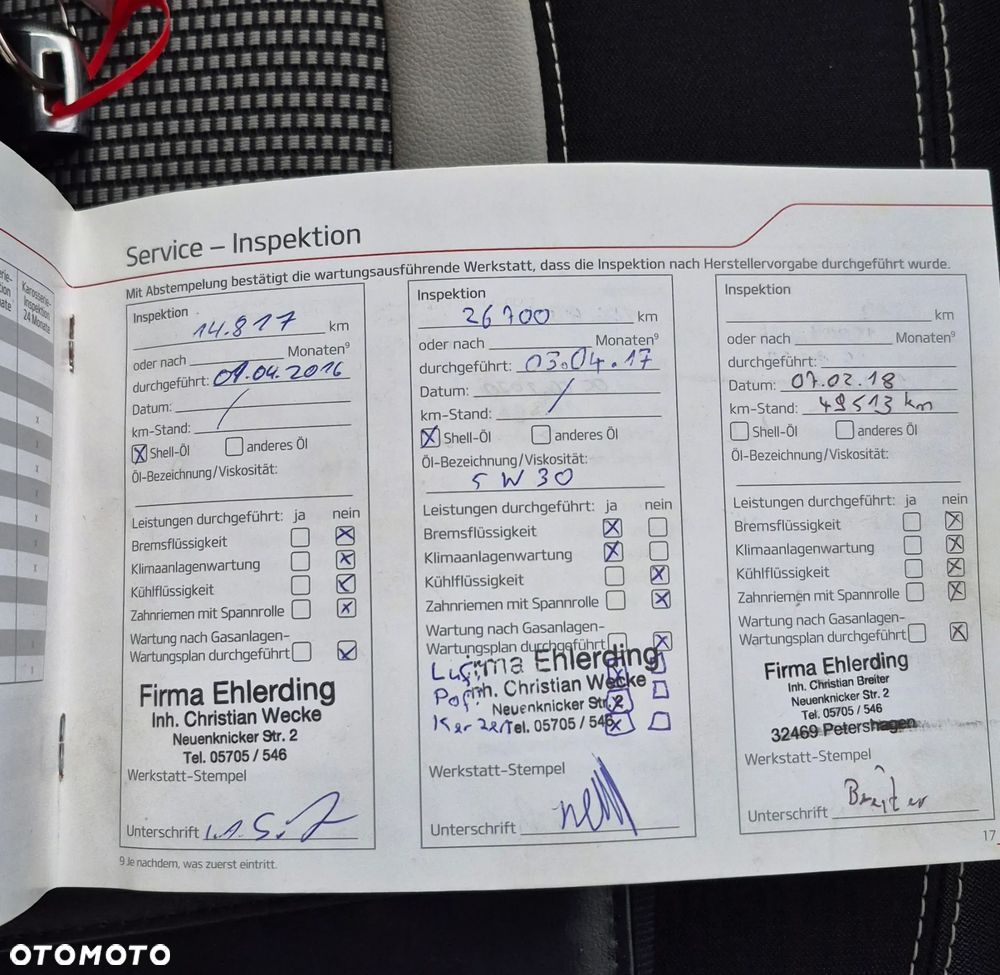 Karosserie-
Inspektion
24 Monate
Service – Inspektion
Mit Abstempelung bestätigt die wartungsausführende Werkstatt, dass die Inspektion nach Herstellervorgabe durchgeführt wurde.
Inspektion
14.817 km
oder nach Monaten⁹
durchgeführt: 07.04.2016
Datum: /
km-Stand:
☒ Shell-Öl ☐ anderes Öl
Öl-Bezeichnung/Viskosität:
Leistungen durchgeführt: ja nein
Bremsflüssigkeit ☐ ☒
Klimaanlagenwartung ☐ ☒
Kühlflüssigkeit ☐ ☒
Zahnriemen mit Spannrolle ☐ ☒
Wartung nach Gasanlagen-
Wartungsplan durchgeführt ☐ ☒
Firma Ehlerding
Inh. Christian Wecke
Neuenknicker Str. 2
Tel. 05705 / 546
Werkstatt-Stempel
Unterschrift
⁹ Je nachdem, was zuerst eintritt.
Inspektion
26700 km
oder nach Monaten⁹
durchgeführt: 03.04.17
Datum: /
km-Stand:
☒ Shell-Öl ☐ anderes Öl
Öl-Bezeichnung/Viskosität:
5 W 30
Leistungen durchgeführt: ja nein
Bremsflüssigkeit ☒ ☐
Klimaanlagenwartung ☒ ☐
Kühlflüssigkeit ☐ ☒
Zahnriemen mit Spannrolle ☐ ☒
Wartung nach Gasanlagen-
Wartungsplan durchgeführt ☐ ☒
Firma Ehlerding
Inh. Christian Wecke
Neuenknicker Str. 2
Kerzen Tel. 05705 / 546
Werkstatt-Stempel
Unterschrift
Inspektion
km
oder nach Monaten⁹
durchgeführt:
Datum: 07.02.18
km-Stand: 49513 km
☐ Shell-Öl ☐ anderes Öl
Öl-Bezeichnung/Viskosität:
Leistungen durchgeführt: ja nein
Bremsflüssigkeit ☐ ☒
Klimaanlagenwartung ☐ ☒
Kühlflüssigkeit ☐ ☒
Zahnriemen mit Spannrolle ☐ ☒
Wartung nach Gasanlagen-
Wartungsplan durchgeführt ☐ ☒
Firma Ehlerding
Inh. Christian Breiter
Neuenknicker Str. 2
Tel. 05705 / 546
32469 Petershagen
Werkstatt-Stempel
Unterschrift Breiter
17
OTOMOTO